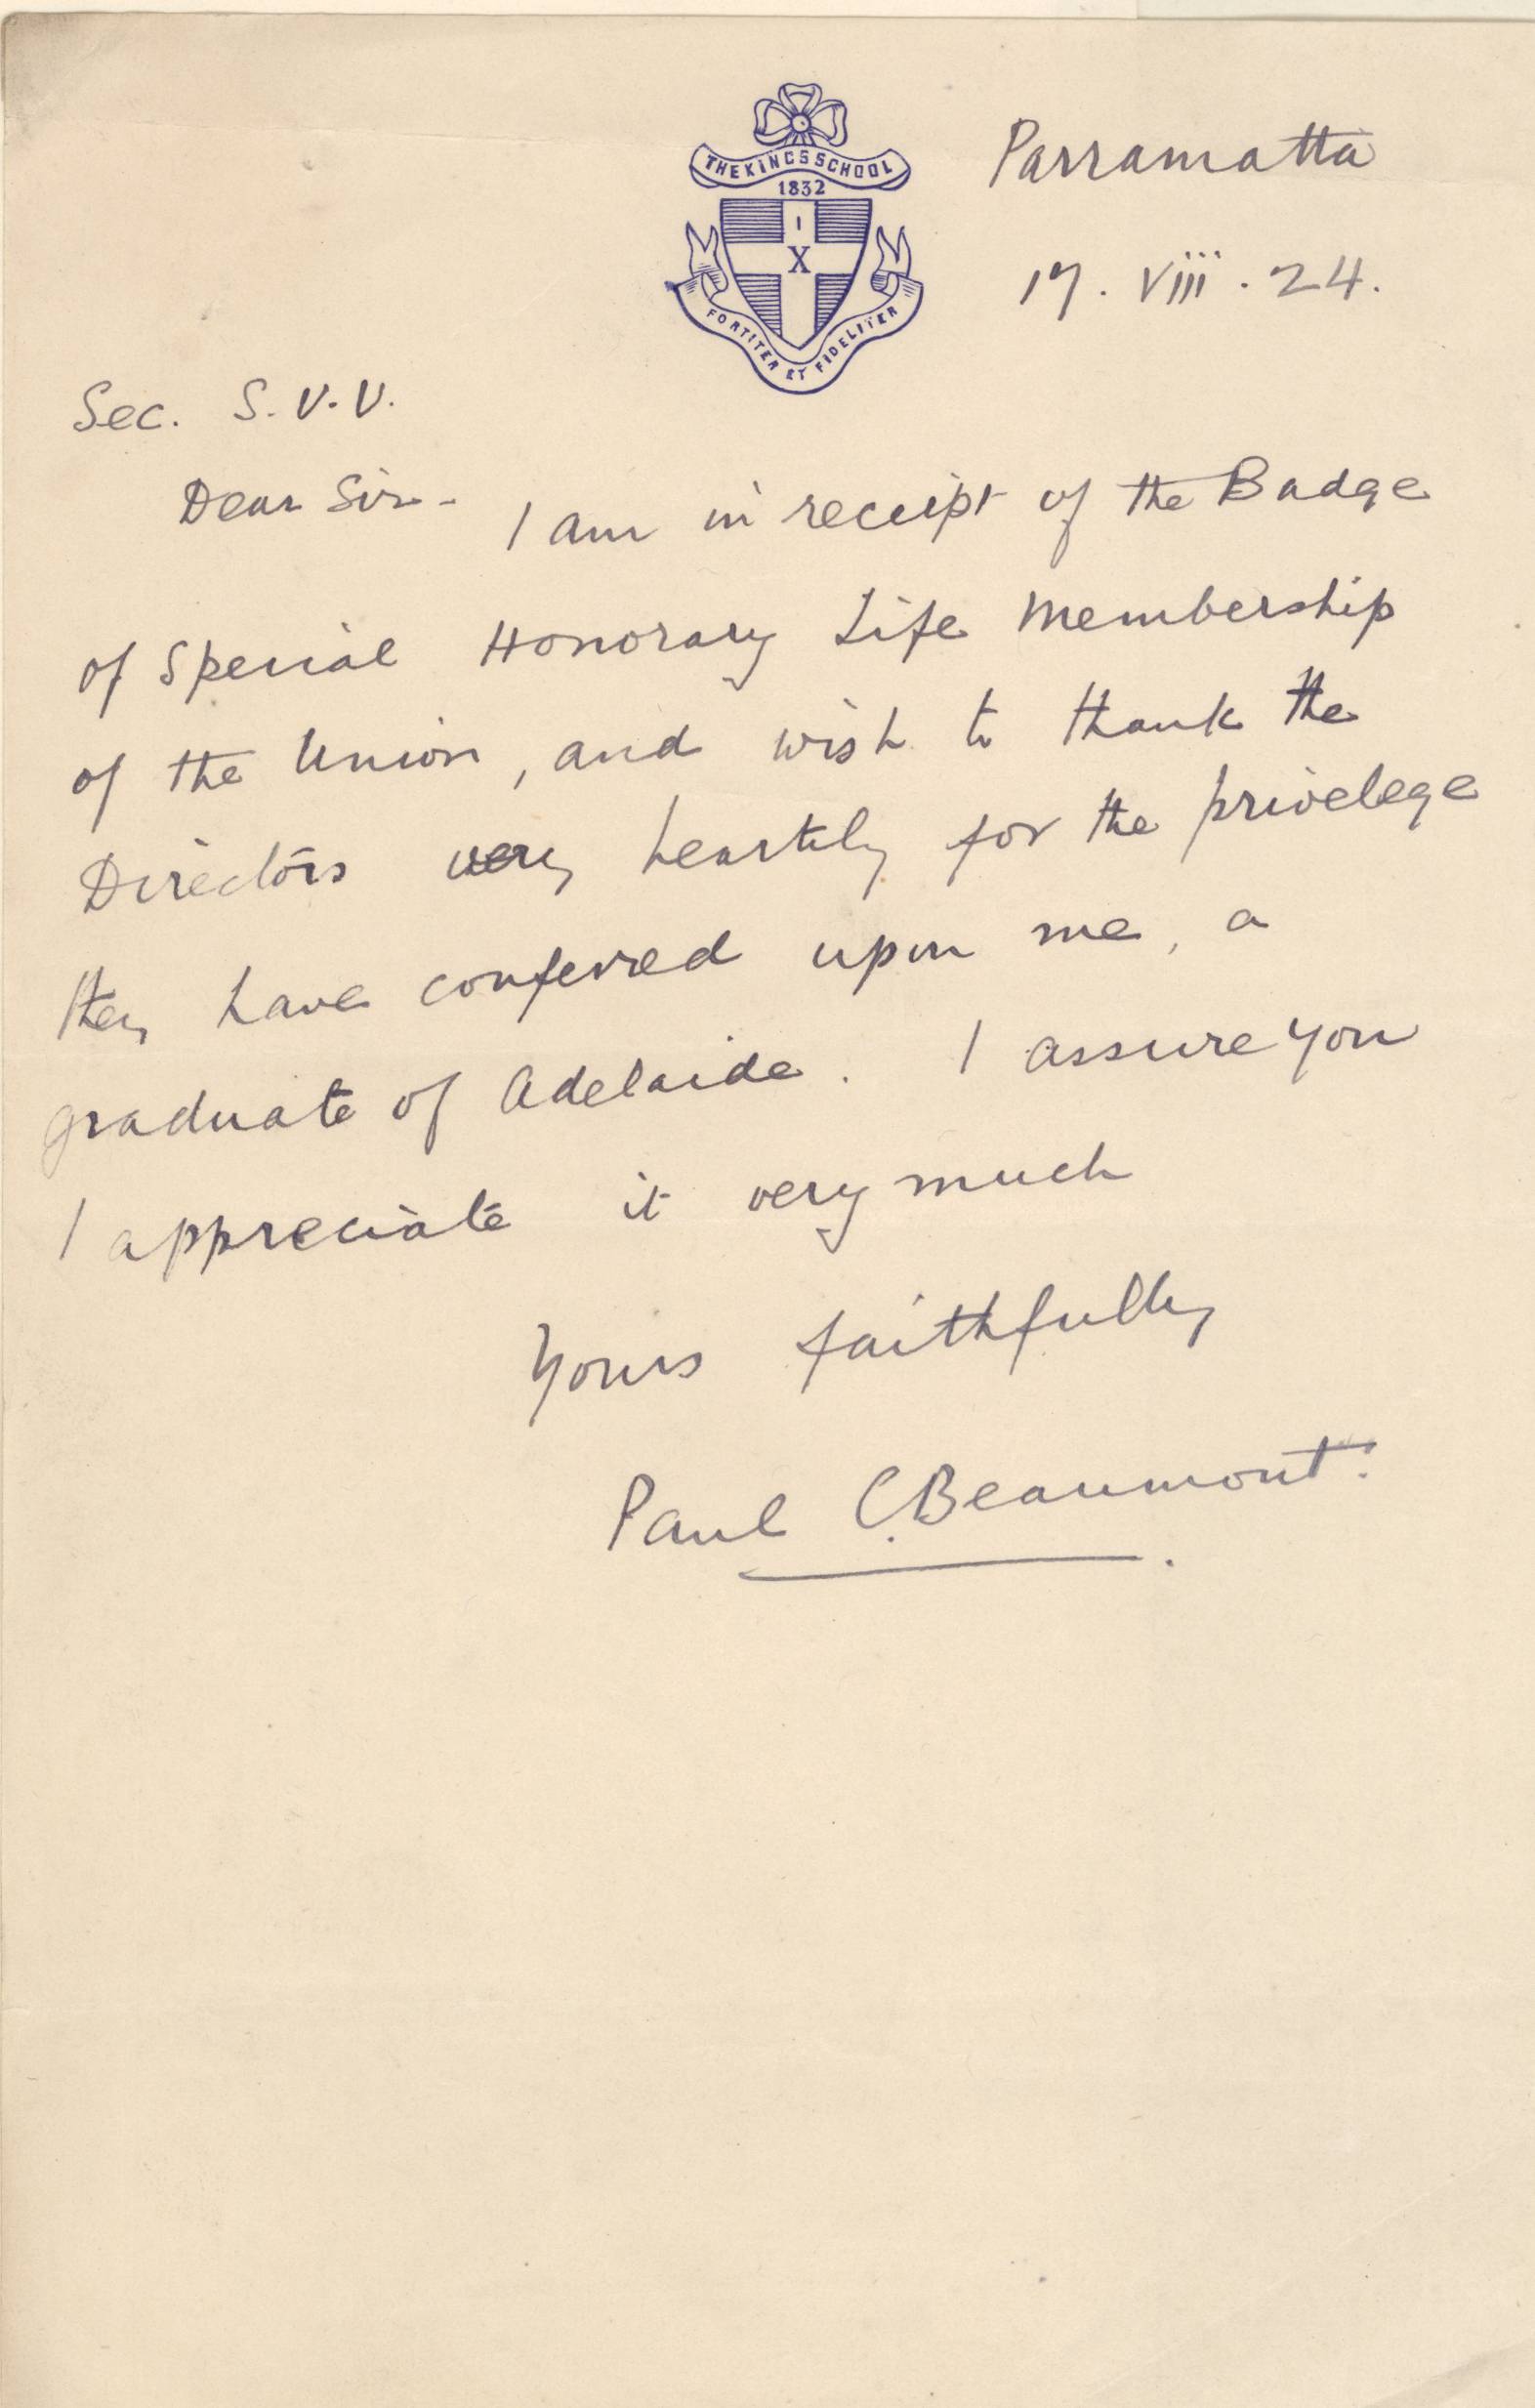 THE KINGS SCHOOL
1832
I
X
FORTITER ET FIDELITER
Parramatta
17. viii. 24.
Sec. S.U.U.
Dear Sir - I am in receipt of the Badge
of Special Honorary Life Membership
of the Union, and wish to thank the
Directors very heartily for the privelege
they have conferred upon me, a
graduate of Adelaide. I assure you
I appreciate it very much
Yours faithfully
Paul C. Beaumont.